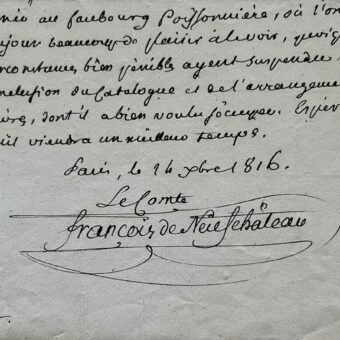 au faubourg Poissonnière, où l'on
toujours beaucoup de plaisir à le voir, quoique
circonstances bien pénibles ayent suspendu
du Catalogue et de l'arrangement
dont il a bien voulu s'occuper.
qu'il viendra un meilleur temps.
Paris, le 14 xbre 1816.
Le Comte
françois de Neufchâteau